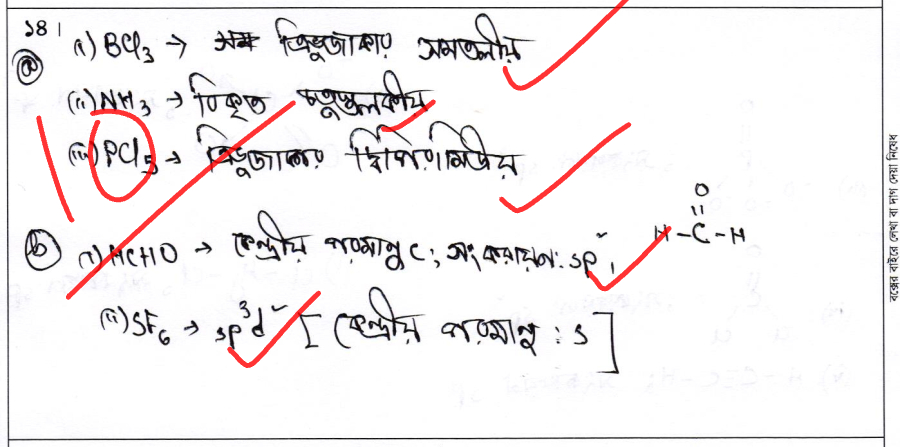 ১৪।
(a) (i) BCl₃ → ত্রিভুজাকার সমতলীয়
(ii) NH₃ → বিকৃত চতুস্তলকীয়
(iii) PCl₅ → ত্রিভুজাকার দ্বিপিরামিডীয়
10
(b) (i) HCHO → কেন্দ্রীয় পরমাণু C; সংকরায়ন: sp²,
O
H-C-H
(ii) SF₆ → sp³d² [কেন্দ্রীয় পরমাণু : S]
বক্সের বাইরে লেখা বা দাগ দেয়া নিষেধ